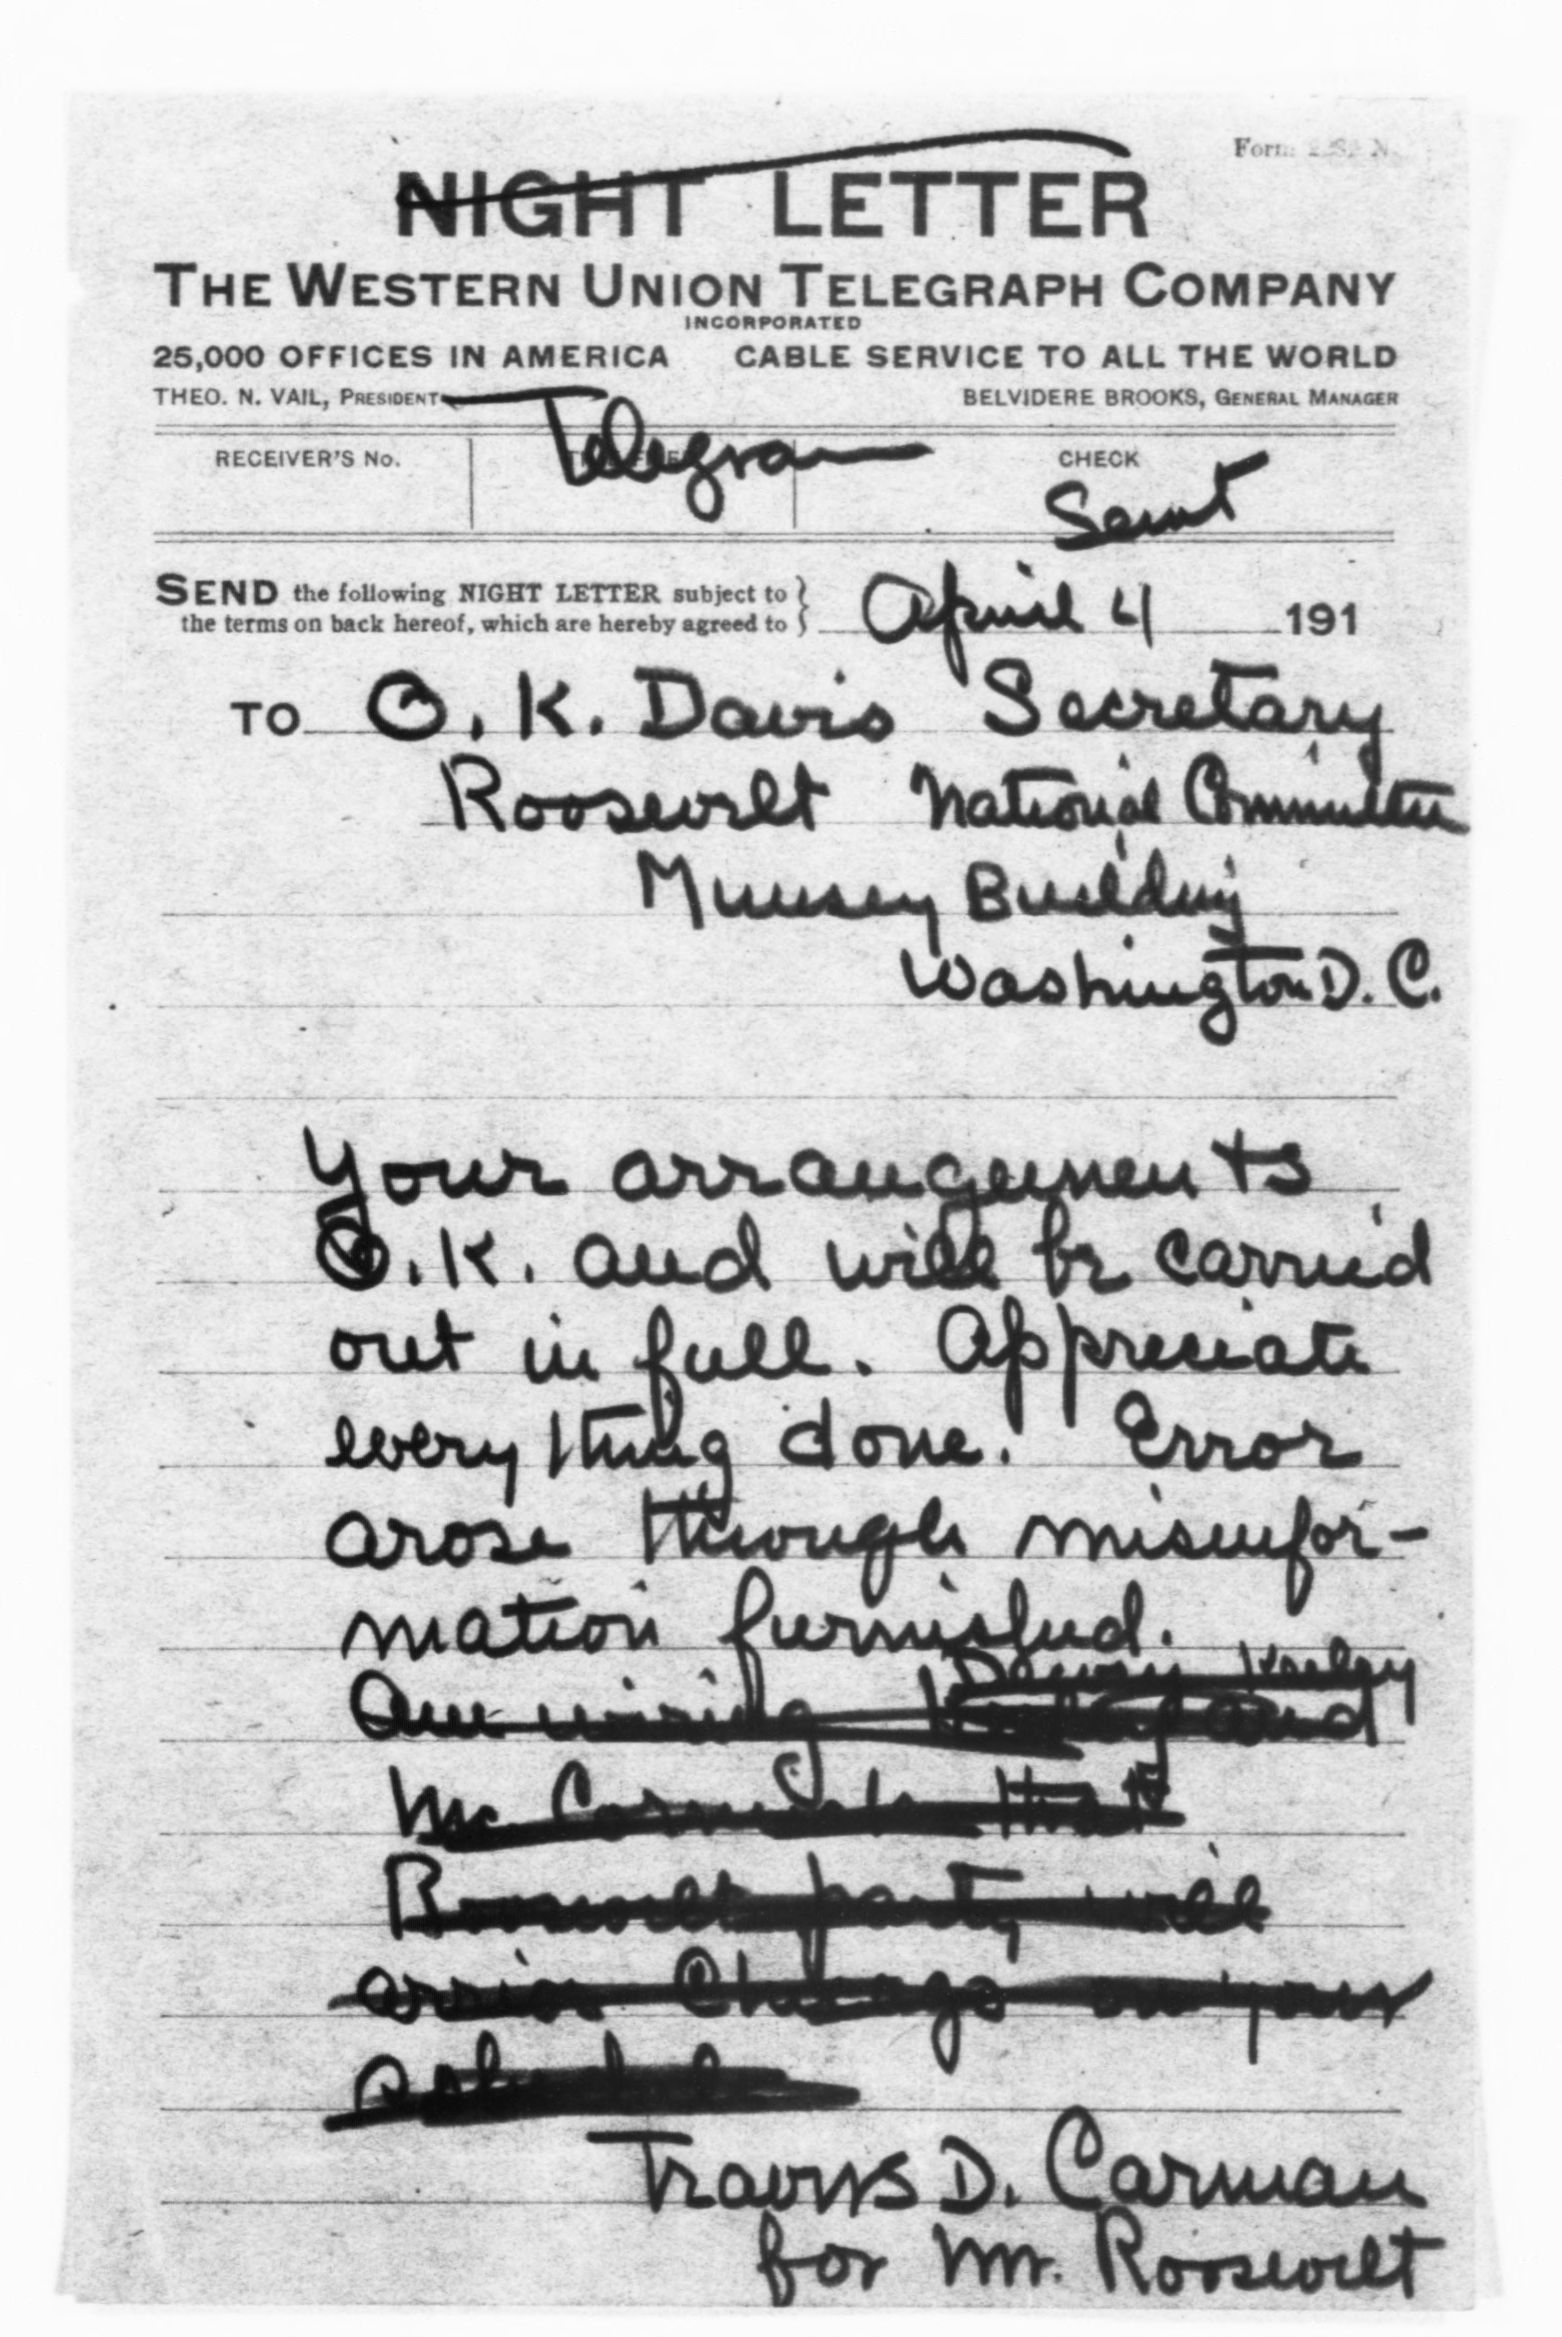 Form
NIGHT LETTER
THE WESTERN UNION TELEGRAPH COMPANY
INCORPORATED
25,000 OFFICES IN AMERICA CABLE SERVICE TO ALL THE WORLD
THEO. N. VAIL, PRESIDENT BELVIDERE BROOKS, GENERAL MANAGER
Telegram
RECEIVER'S No. CHECK
Sent
SEND the following NIGHT LETTER subject to
the terms on back hereof, which are hereby agreed to
April 4 191
TO O. K. Davis Secretary
Roosevelt National Committee
Munsey Building
Washington D. C.
Your arrangements
O.K. and will be carried
out in full. Appreciate
everything done. Error
arose through misinfor-
mation furnished.
Am wiring and
McCormick that
Roosevelt party will
arrive Chicago on your
schedule
Travis D. Carman
for Mr. Roosevelt